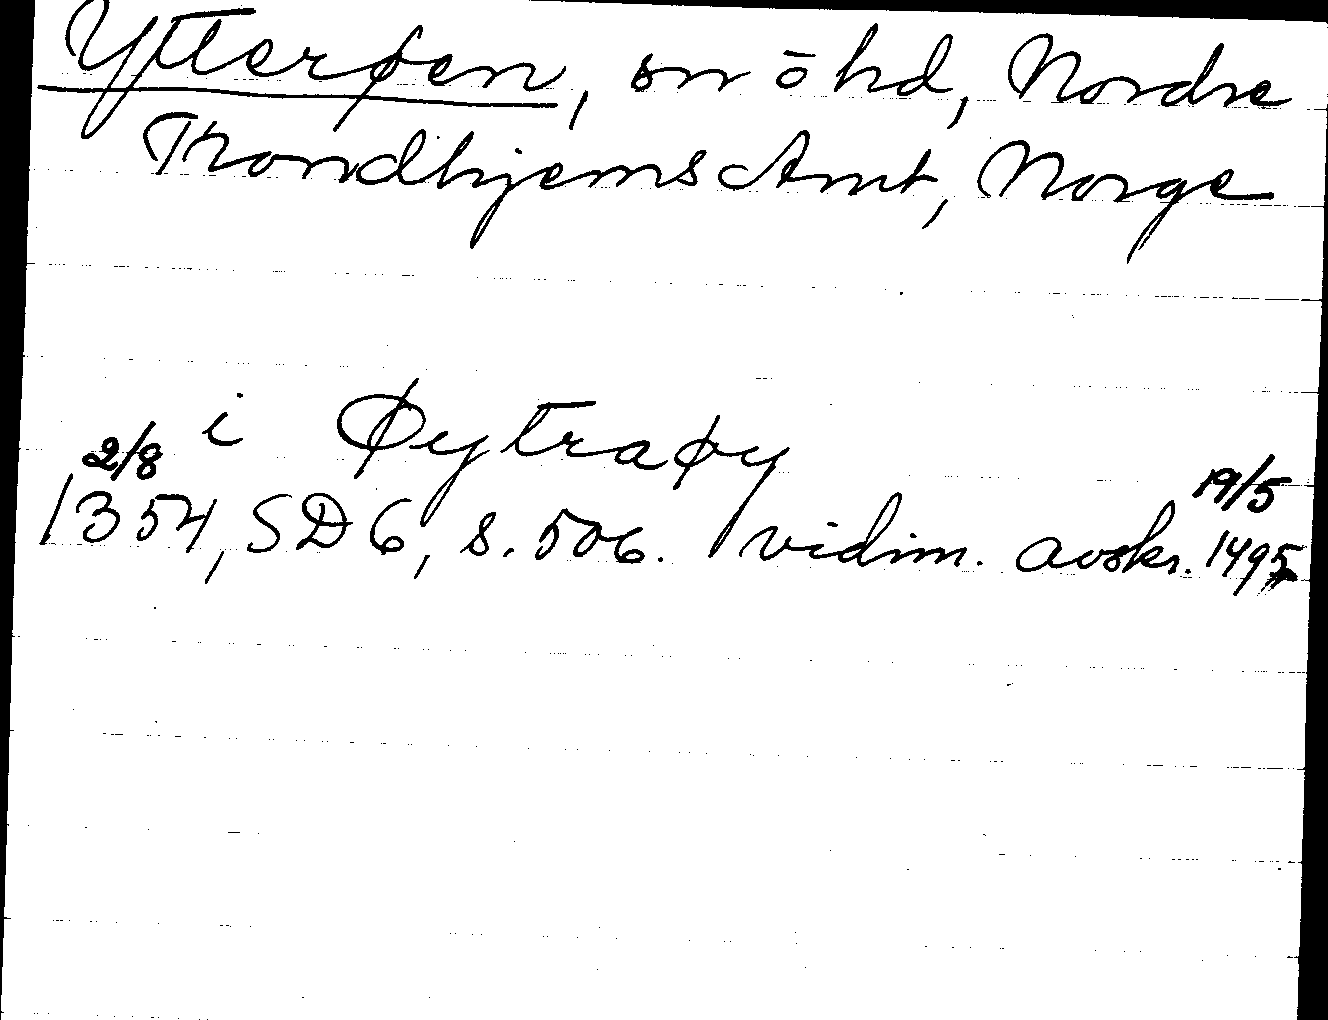 Ytterøen, sn o hd, Nordre
Trondhjems Amt, Norge
i Øytraøy
2/8 19/5
1354, SD 6, s. 506. vidim. avskr. 1495